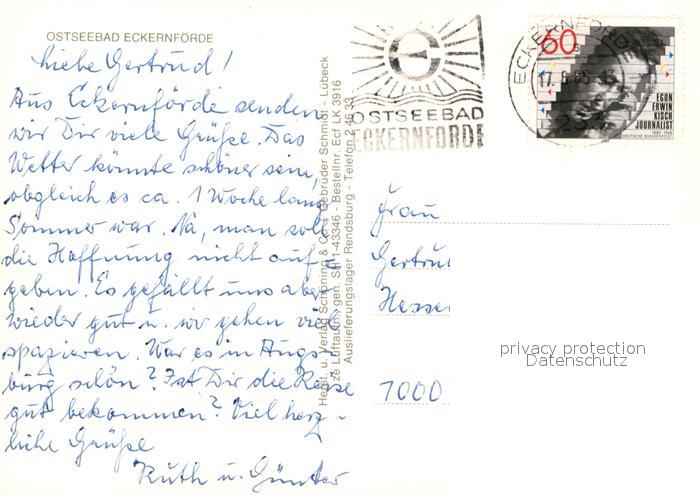 OSTSEEBAD ECKERNFÖRDE
Liebe Gertrud!
Aus Eckernförde senden
wir Dir viele Grüße. Das
Wetter könnte schöner sein,
obgleich es ca. 1 Woche lang
Sommer war. Na, man soll
die Hoffnung nicht auf-
geben. Es gefällt uns aber
wieder gut u. wir gehen viel
spazieren. War es in Augs-
burg schön? Ist Dir die Reise
gut bekommen? Viel herz-
liche Grüße
Ruth u. Günter
Herst. u. Verlag Schöning & Co + Gebrüder Schmidt - Lübeck
gen. SH 11-43346 - Bestellnr. Ecf LK 3916
Auslieferungslager Rendsburg - Telefon 2 46 33
OSTSEEBAD
ECKERNFÖRDE
ECKERNFÖRDE
17.8.85
233
60
EGON
ERWIN
KISCH
JOURNALIST
1885-1948
DEUTSCHE BUNDESPOST
Frau
Gertrud
Hesse
1000
privacy protection
Datenschutz